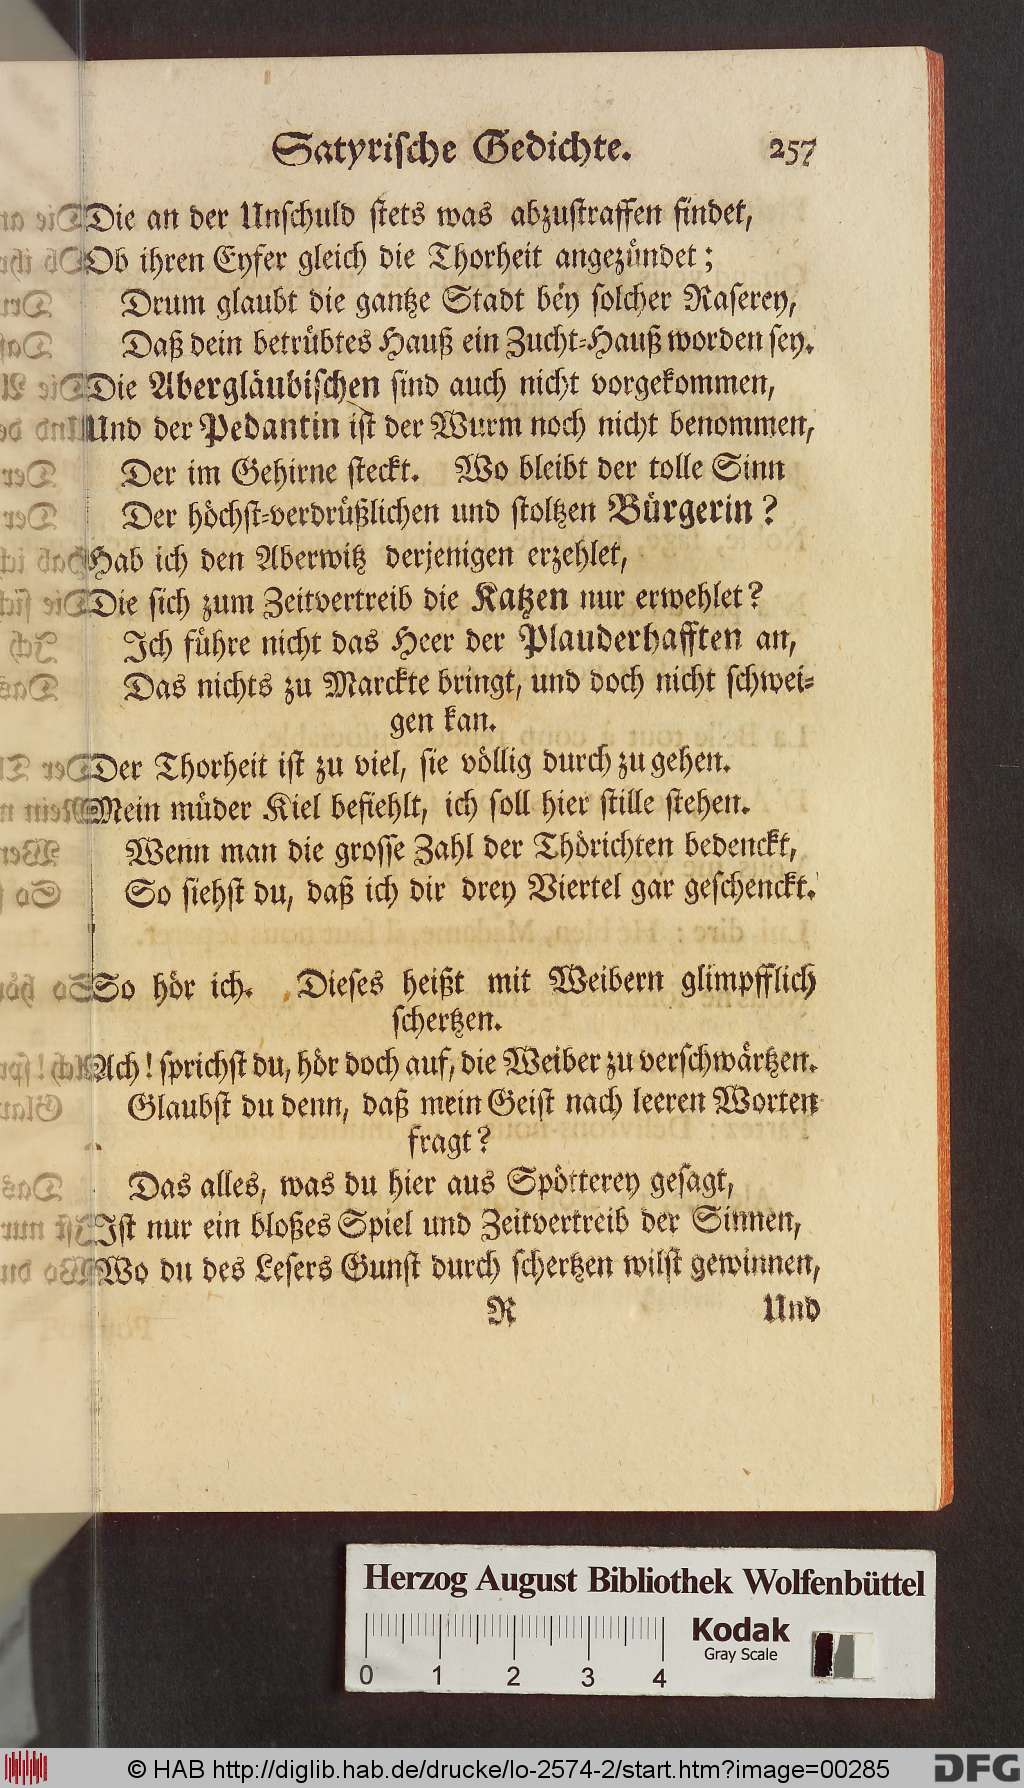 Satyrische Gedichte. 257
Die an der Unschuld stets was abzustraffen findet,
Ob ihren Eyfer gleich die Thorheit angezündet;
Drum glaubt die gantze Stadt bey solcher Raserey,
Daß dein betrübtes Hauß ein Zucht-Hauß worden sey.
Die Abergläubischen sind auch nicht vorgekommen,
Und der Pedantin ist der Wurm noch nicht benommen,
Der im Gehirne steckt. Wo bleibt der tolle Sinn
Der höchst-verdrüßlichen und stoltzen Bürgerin?
Hab ich den Aberwitz derjenigen erzehlet,
Die sich zum Zeitvertreib die Katzen nur erwehlet?
Ich führe nicht das Heer der Plauderhafften an,
Das nichts zu Marckte bringt, und doch nicht schwei-
gen kan.
Der Thorheit ist zu viel, sie völlig durch zu gehen.
Mein müder Kiel befiehlt, ich soll hier stille stehen.
Wenn man die grosse Zahl der Thörichten bedenckt,
So siehst du, daß ich dir drey Viertel gar geschenckt.
So hör ich. Dieses heißt mit Weibern glimpfflich
schertzen.
Ach! sprichst du, hör doch auf, die Weiber zu verschwärtzen.
Glaubst du denn, daß mein Geist nach leeren Worten
fragt?
Das alles, was du hier aus Spötterey gesagt,
Ist nur ein bloßes Spiel und Zeitvertreib der Sinnen,
Wo du des Lesers Gunst durch schertzen wilst gewinnen,
R Und
Herzog August Bibliothek Wolfenbüttel
Kodak
Gray Scale
0 1 2 3 4
© HAB http://diglib.hab.de/drucke/lo-2574-2/start.htm?image=00285
DFG